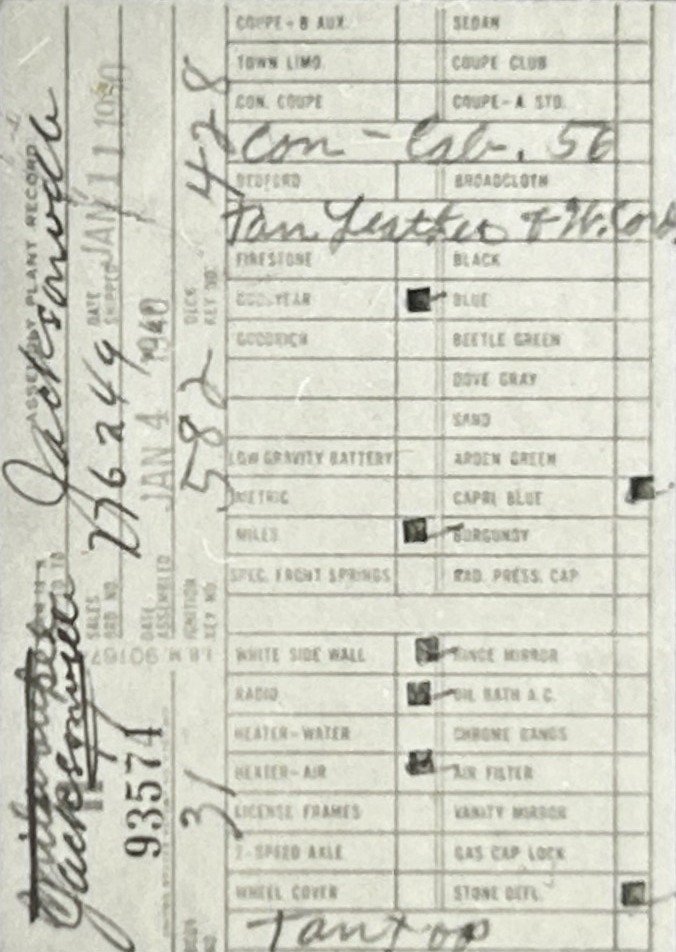 COUPE - B AUX. SEDAN
TOWN LIMO. COUPE CLUB
CON. COUPE COUPE - A STD.
Con - Cab. 56
BEDFORD BROADCLOTH
Tan Leather & W. Cord
FIRESTONE BLACK
GOODYEAR BLUE
GOODRICH BEETLE GREEN
DOVE GRAY
SAND
LOW GRAVITY BATTERY ARDEN GREEN
METRIC CAPRI BLUE
MILES BURGUNDY
SPEC. FRONT SPRINGS RAD. PRESS. CAP
WHITE SIDE WALL HINGE MIRROR
RADIO OIL BATH A.C.
HEATER - WATER CHROME BANDS
HEATER - AIR AIR FILTER
LICENSE FRAMES VANITY MIRROR
2-SPEED AXLE GAS CAP LOCK
WHEEL COVER STONE DEFL.
Tan top
ASSEMBLY PLANT RECORD
Jacksonville
Jacksonville
DATE SHIPPED JAN 11 1940
SALES ORD NO. 276249
DATE ASSEMBLED JAN 4 1940
93574
I.B.M. 90167
DECK KEY NO. 428
IGNITION KEY NO. 582
BODY NO. 31